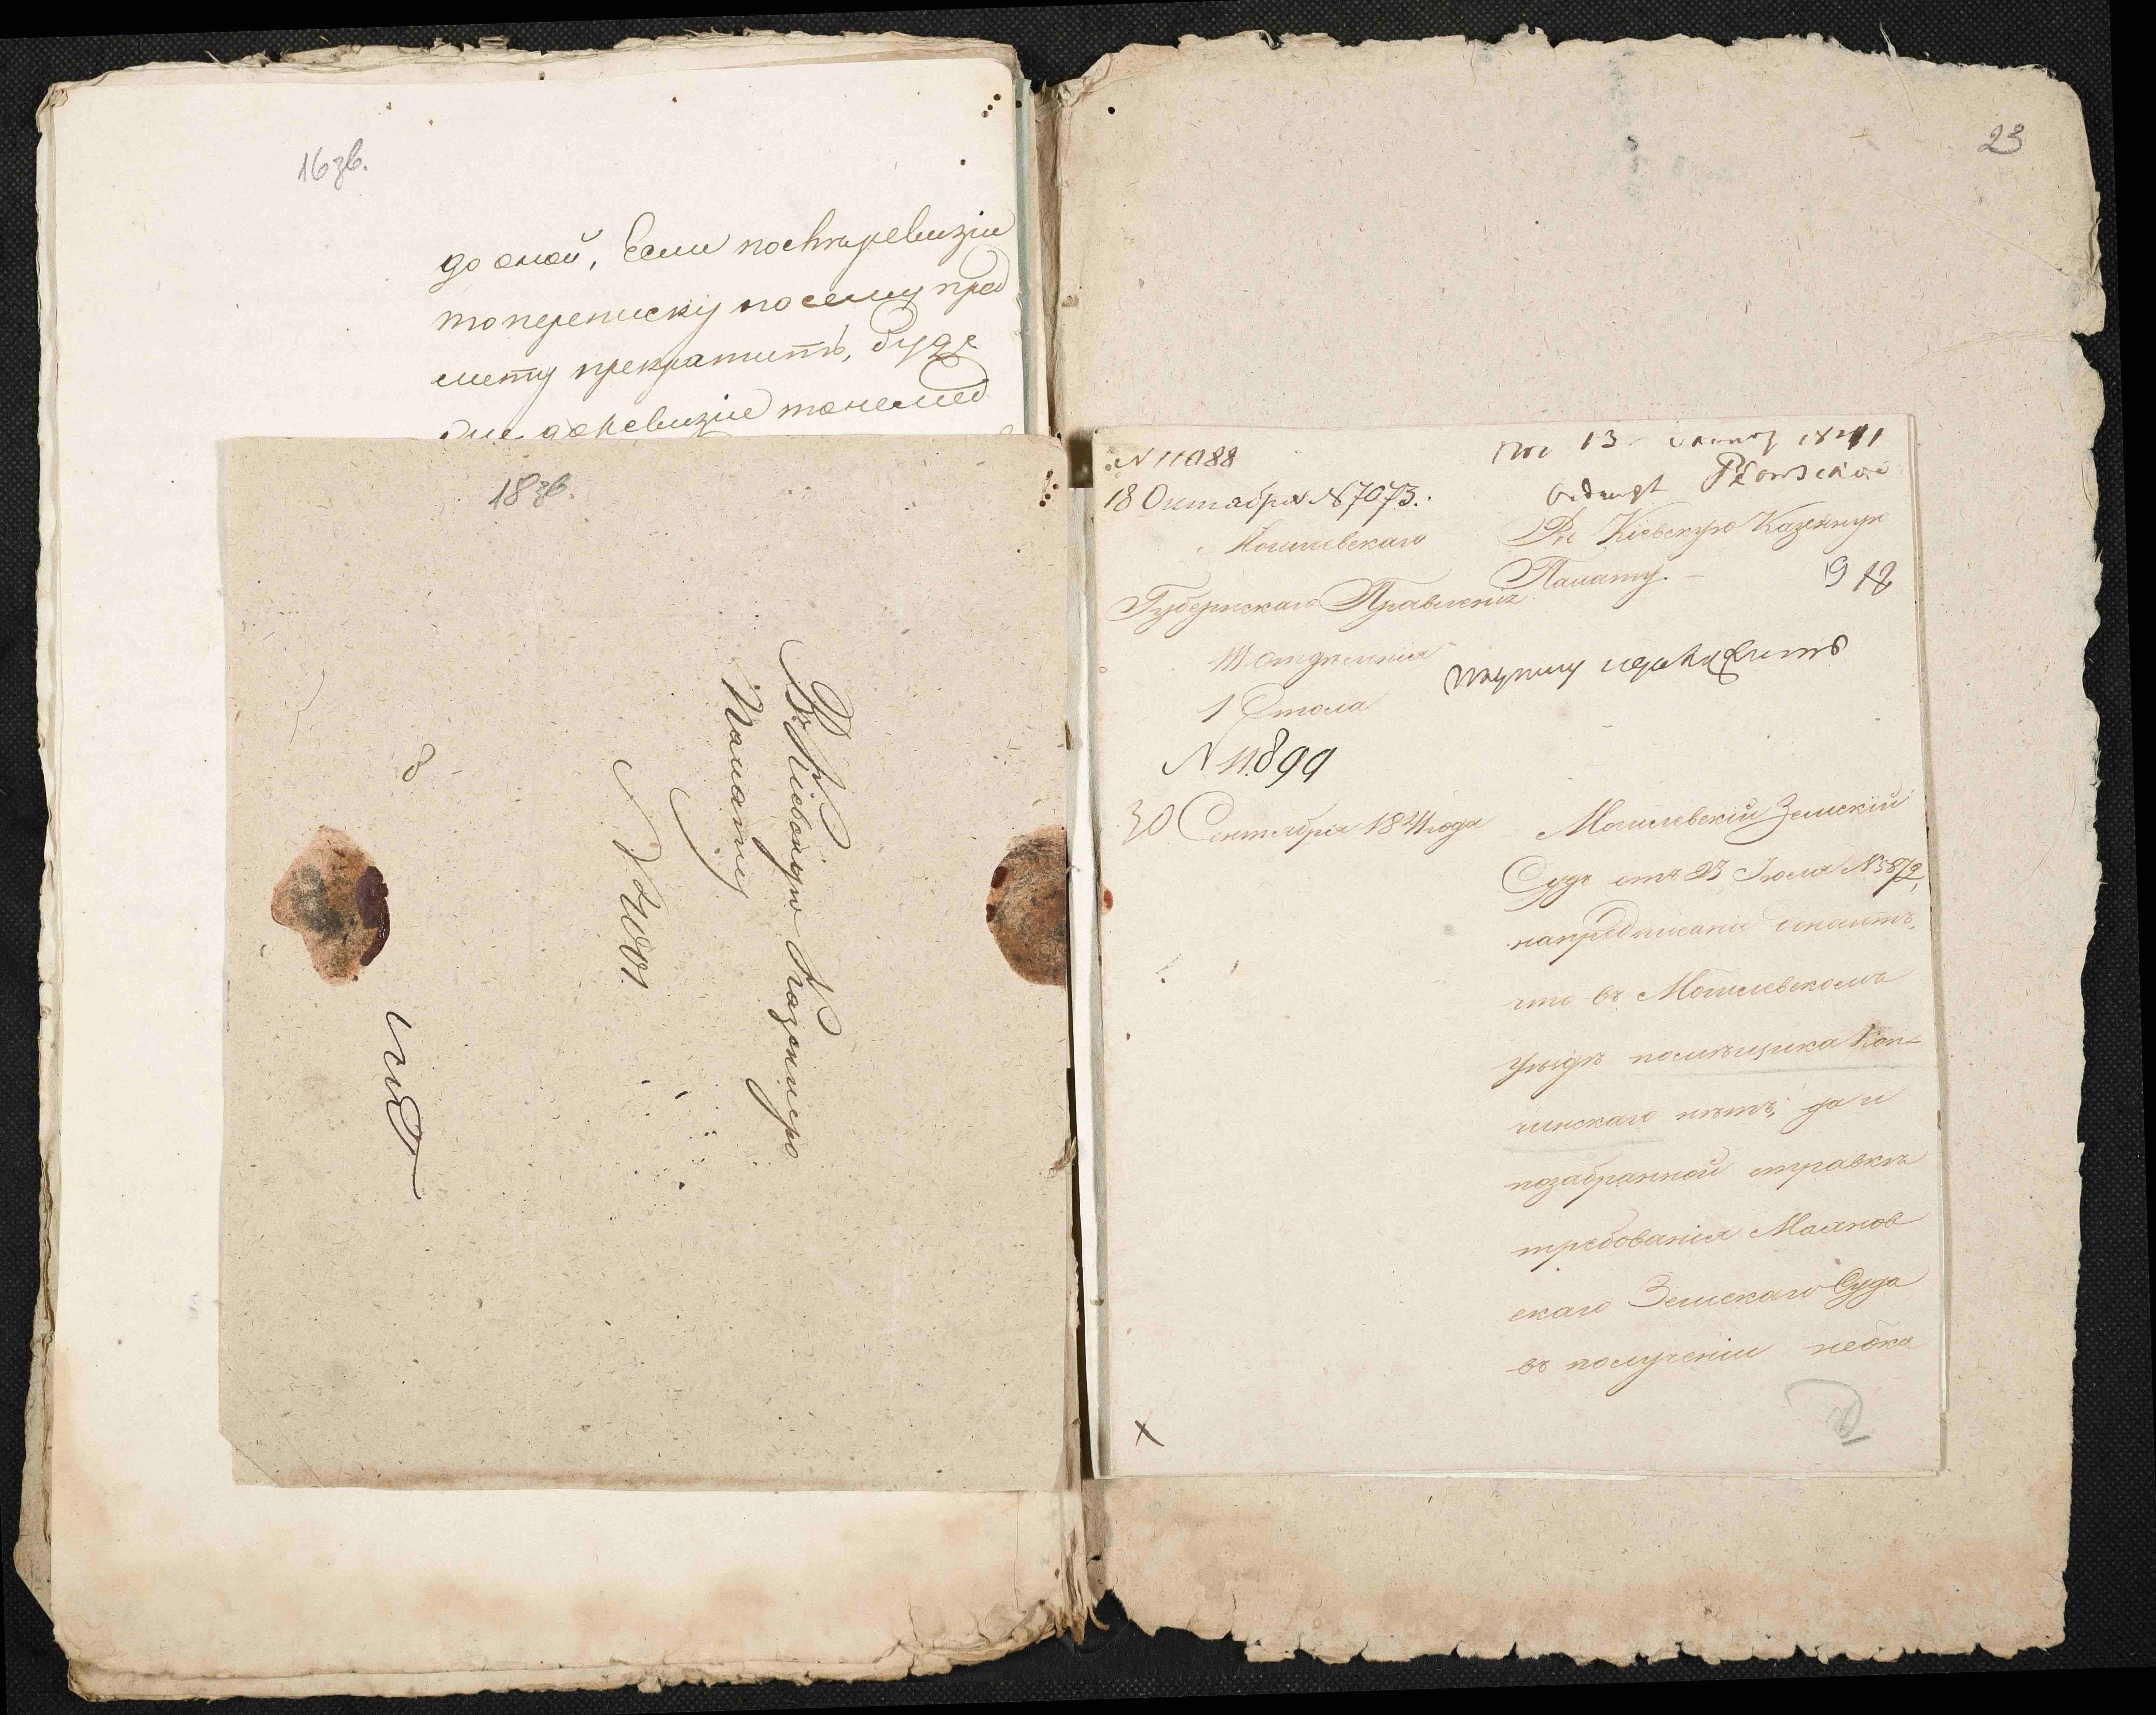 16 зв.
до оной, Если послѣ ревизіи
то переписку по сему пред
мету прекратить, буде
до ревизіи то немед
18 зв.
Въ Кіевскую Казенную
Палату
N 21001.
8
23
N 11088
18 Октября N 7073.
13 1841
Могилевскаго
Губернскаго Правленія
III отдѣленія
1 Стола
N 11.899
30 Сентября 1841 года
Въ Кіевскую Казенную
Палату.
19
Могилевскій Земскій
Судъ отъ 23 Іюля N 5872,
на предписаніе доноситъ,
что въ Могилевскомъ
уѣздѣ помѣщика Коп-
чинскаго нѣтъ, да и
по забранной справкѣ
требованія Махнов
скаго Земскаго Суда
въ полученіи неока